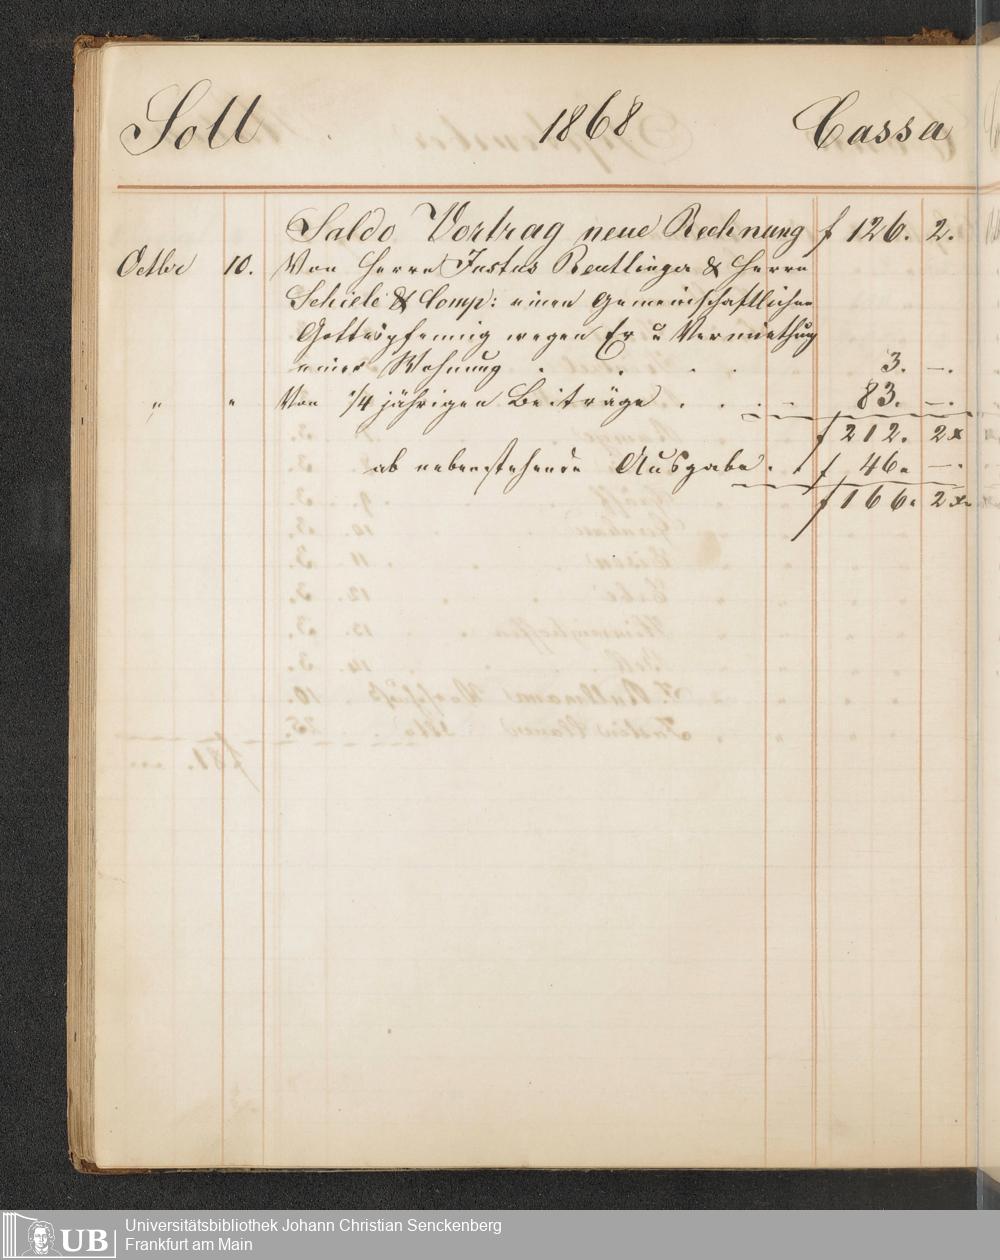 Soll 1868 Cassa
Saldo Vortrag neue Rechnung f 126. 2.
Octbr 10. Von Herrn Justus Reutlinger & Herrn
Schiele & Comp: einen Gemeinschaftlichen
Gottespfennig wegen Er u Vermiethung
einer Wohnung . . . . 3. —.
" " Von 1/4 jährigen Beiträge . . . 83. —.
f 212. 2x
ab nebenstehende Ausgabe . . f 46. —.
f 166. 2x.
UB Universitätsbibliothek Johann Christian Senckenberg
Frankfurt am Main